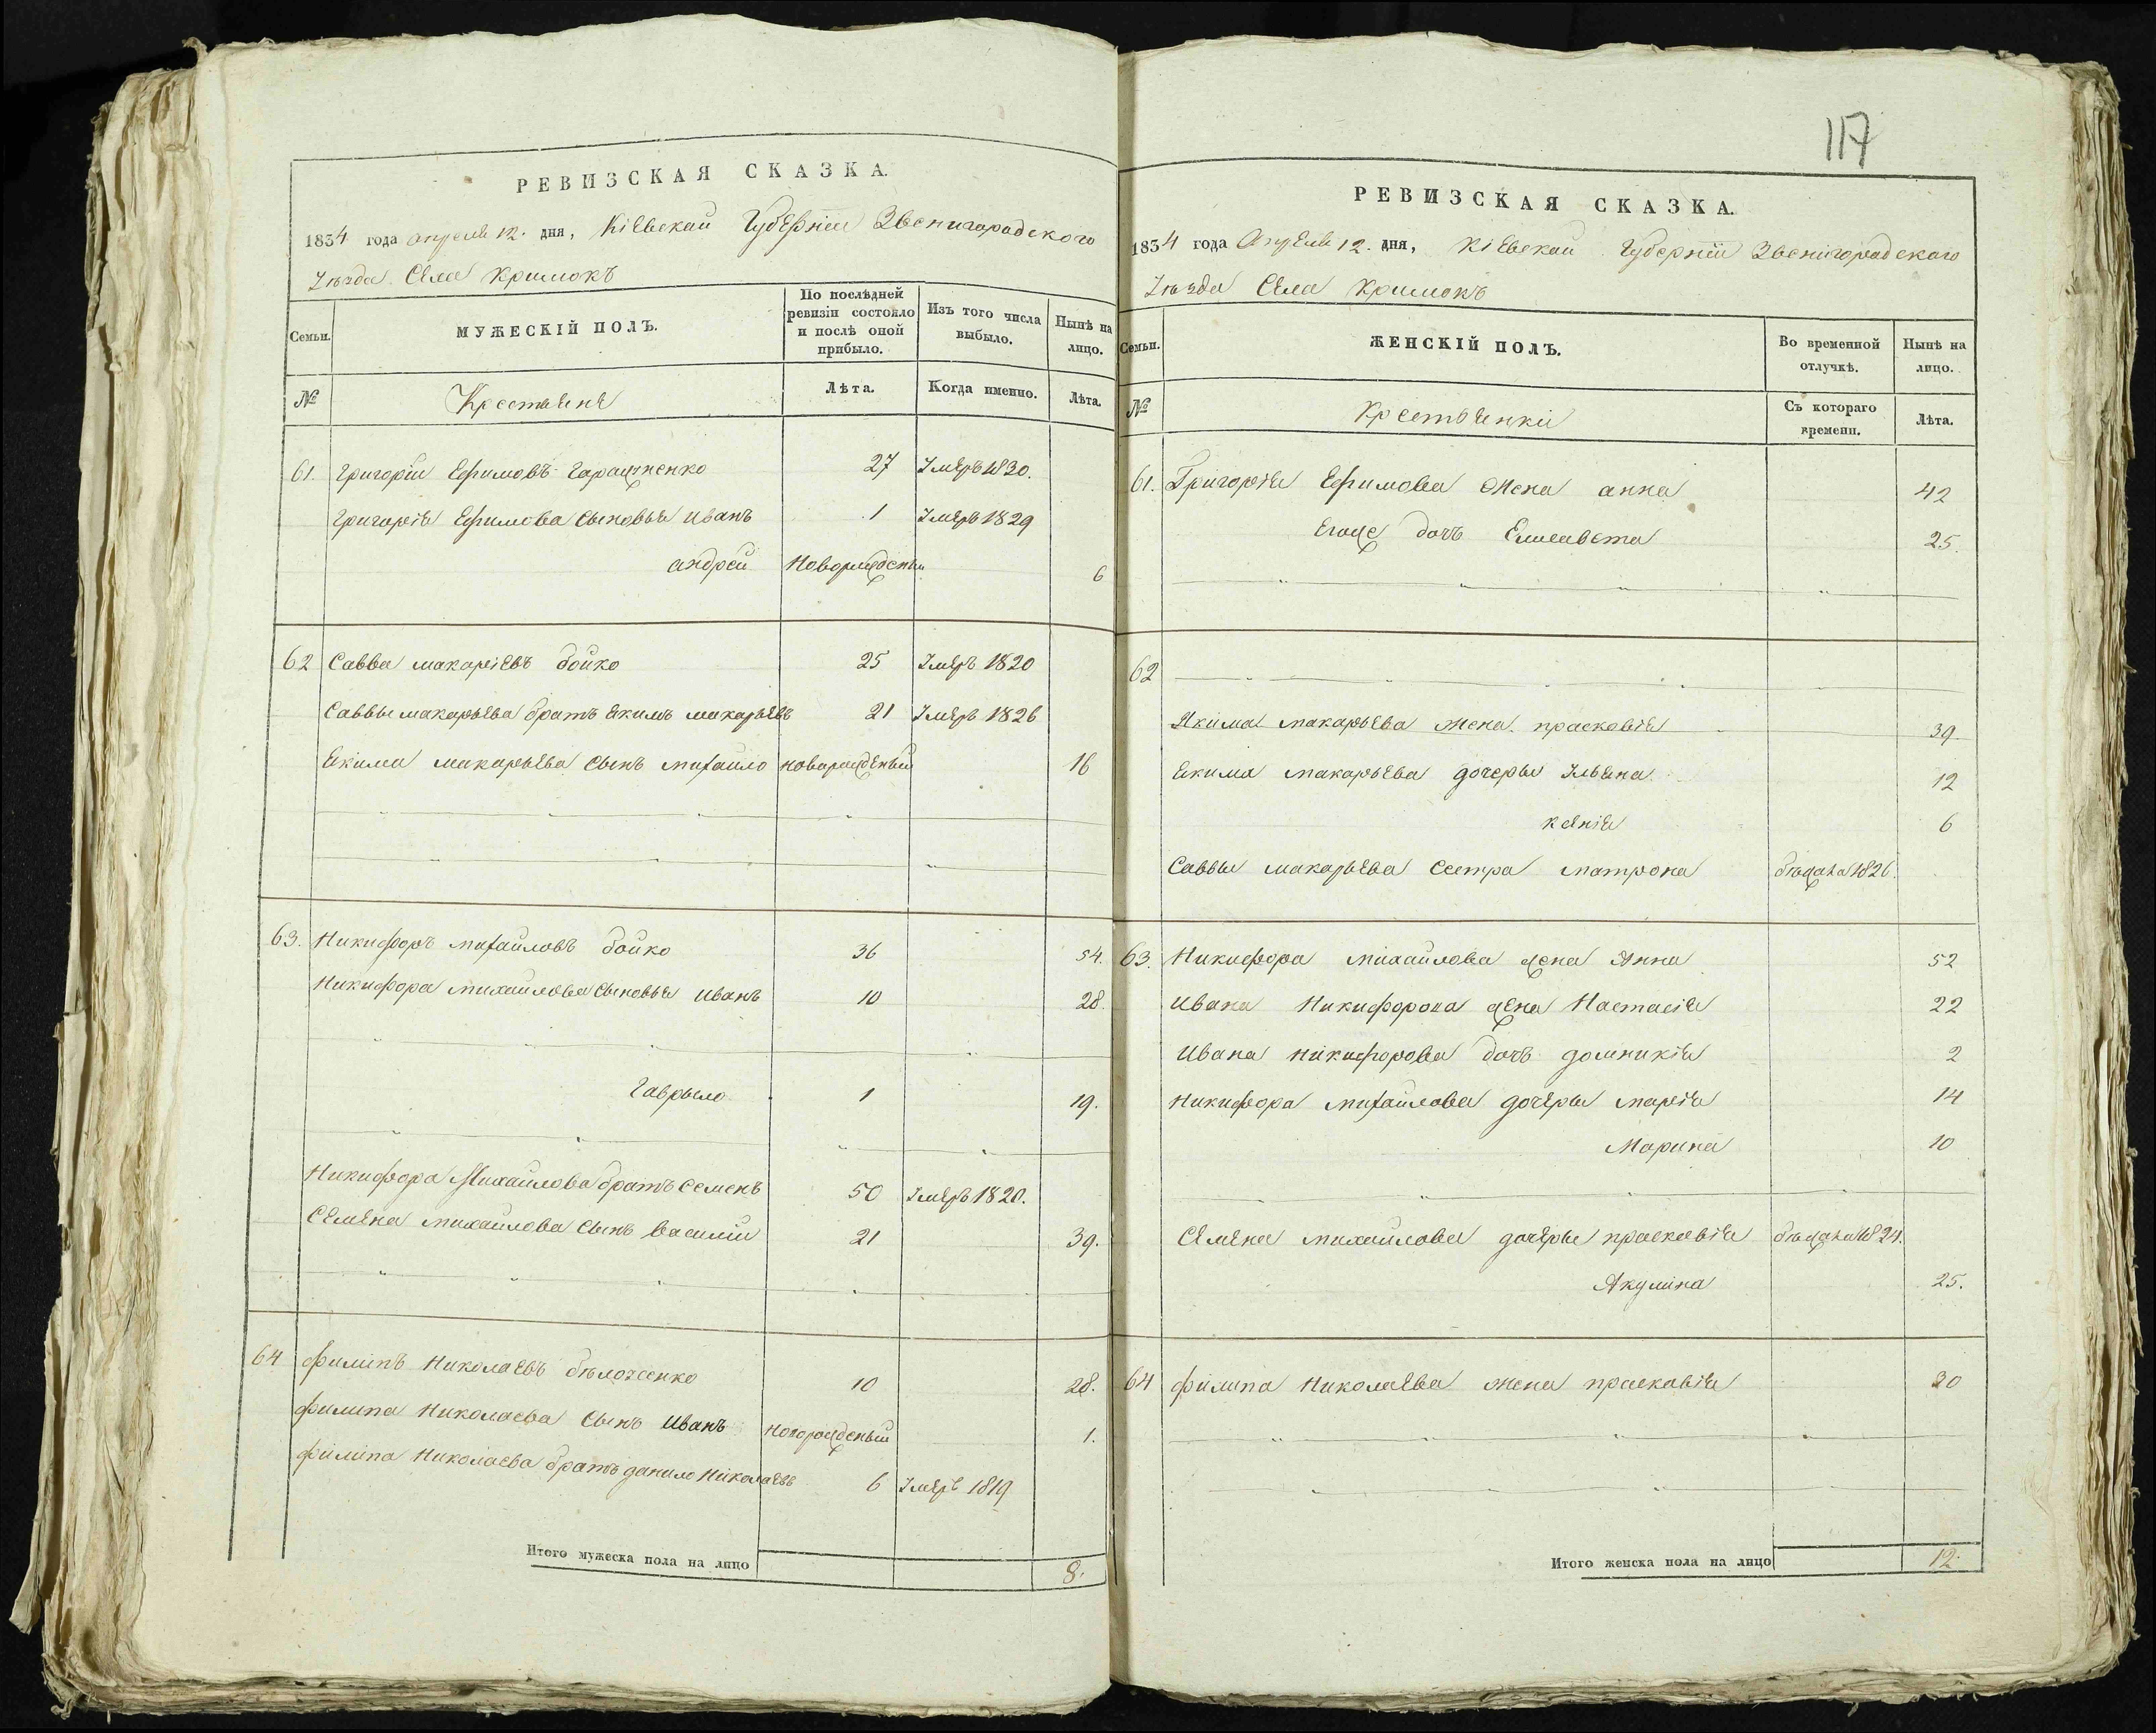 РЕВИЗСКАЯ СКАЗКА.
1834 года апреля 12. дня, Кіевской Губерніи Звенигородского
Уезда Села Кримокъ
Семьи.
МУЖЕСКІЙ ПОЛЪ.
По послѣдней ревизіи состояло и послѣ оной прибыло.
Изъ того числа выбыло.
Нынѣ на лицо.
№
Крестьяне
Лѣта.
Когда именно.
Лѣта.
61. Григорій Ефимовъ 27 Умеръ 1830.
Григорія Ефимова Сыновья Иванъ 1 Умеръ 1829
андрей Новорожденый 6
62 Савва макаріевъ бойко 25 Умеръ 1820
Саввы макарьева братъ якимъ макарьевъ 21 Умеръ 1826
якима макарьева Сынъ михайло новорожденый 16
63. Никифоръ михайловъ бойко 36 54.
Никифора михайлова Сыновья иванъ 10 28.
Гаврыло 1 19.
Никифора Михайлова братъ Семенъ 50 Умеръ 1820.
Семена михайлова Сынъ василій 21 39.
64 филипъ Николаевъ 10 28.
филипа Николаева Сынъ Иванъ новорожденый 1.
филипа Николаева братъ данило Николаевъ 6 Умеръ 1819
Итого мужеска пола на лицо 8.
117
РЕВИЗСКАЯ СКАЗКА.
1834 года Апреля 12. дня, Кіевской Губерніи Звенигородского
Уезда Села Кримокъ
Семьи.
ЖЕНСКІЙ ПОЛЪ.
Во временной отлучкѣ.
Нынѣ на лицо.
№
Крестьянки
Съ котораго времени.
Лѣта.
61. Григорія Ефимова Жена анна 42
Егоже дочь Елисавета 25.
62
Якима макарьева жена прасковія 39
якима макарьева дочеры Ульяна 12
ксенія 6
Саввы макарьева Сестра матрона 1826.
63. Никифора михайлова жена Анна 52
Ивана Никифорова жена Настасія 22
Ивана никифорова дочь домникія 2
Никифора михайлова дочеры марія 14
Марина 10
Семена михайлова дочеры праскавія 1824.
Акулина 25.
64 филипа Николаева жена праскавія 30
Итого женска пола на лицо 12.